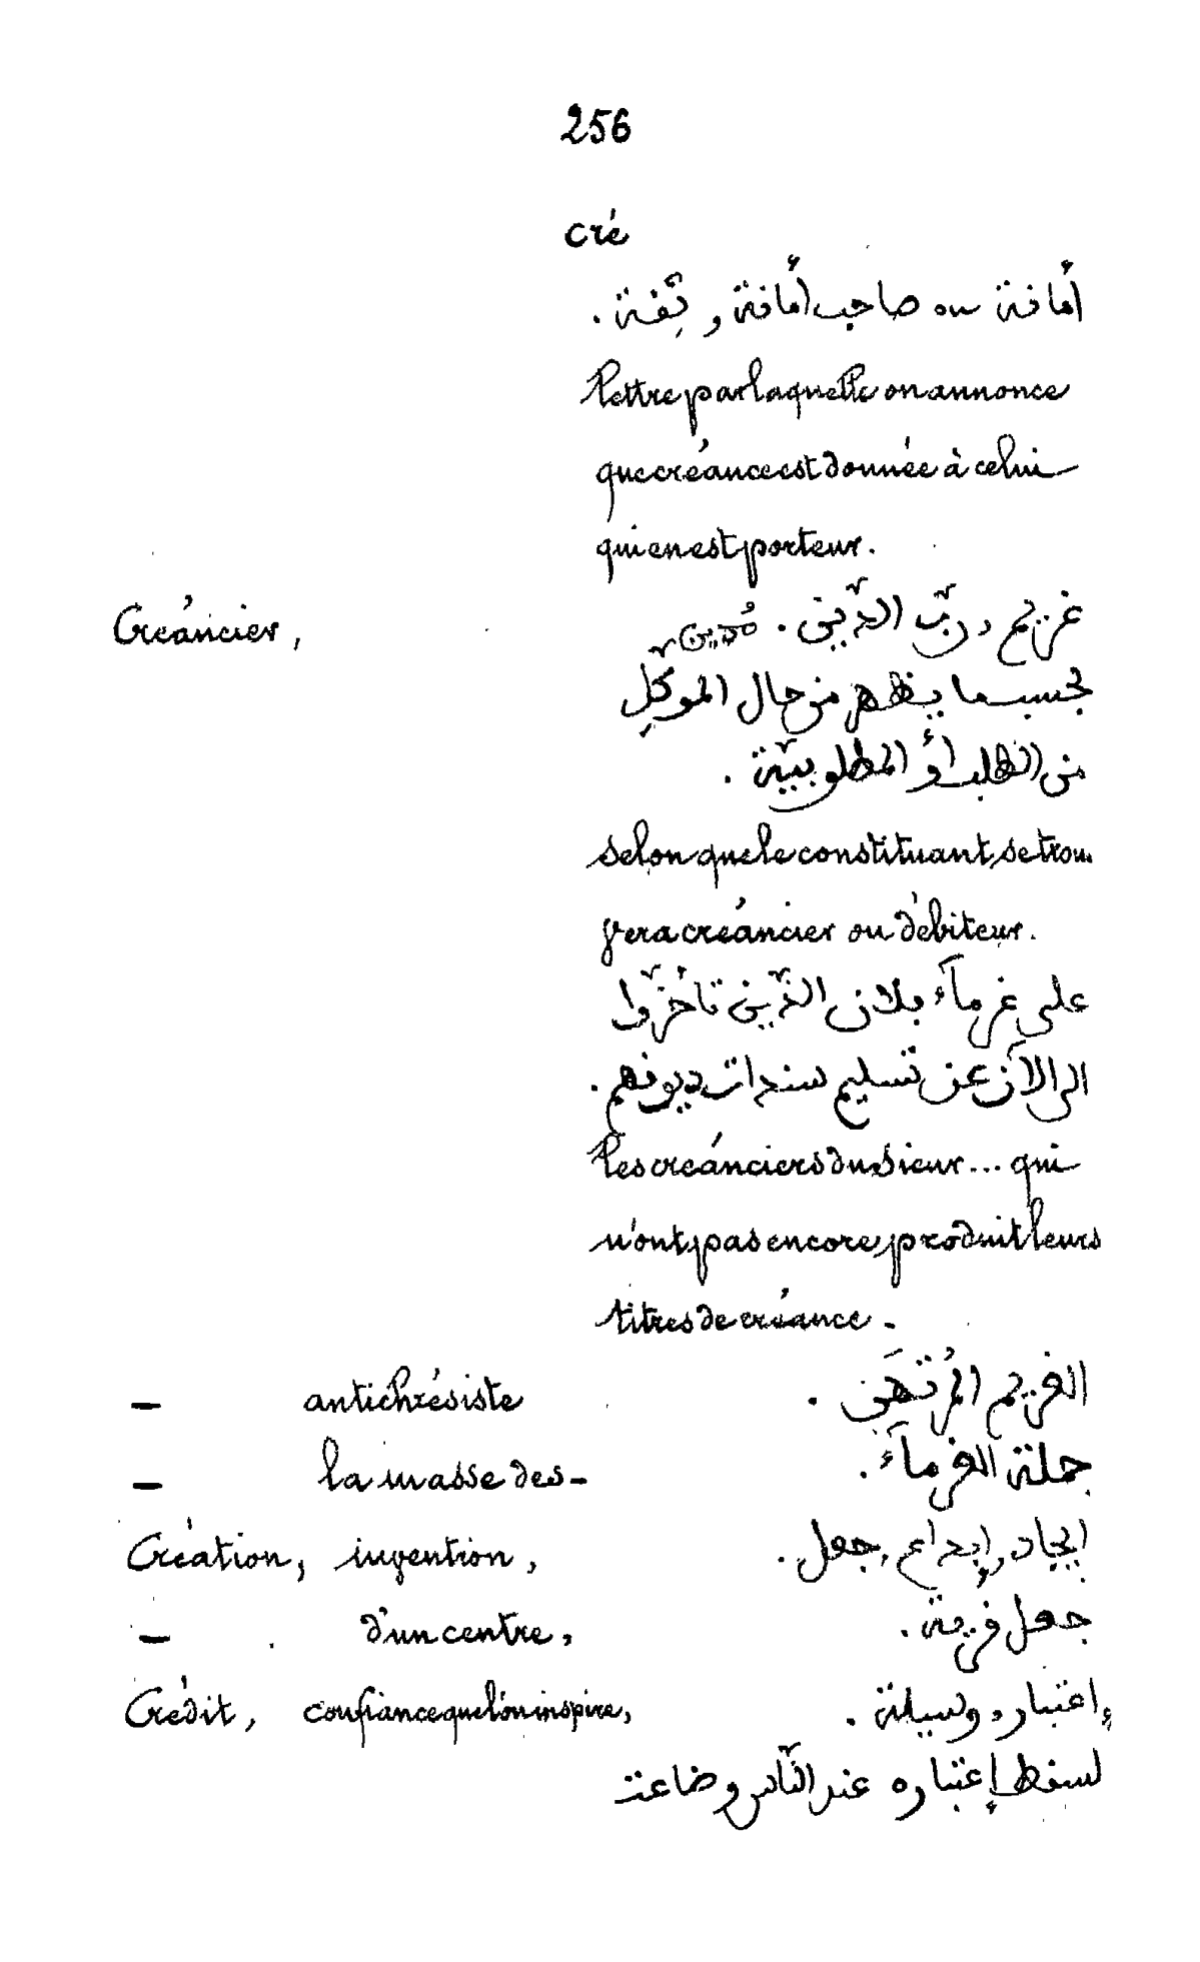 256
cré
أمانة ou صاحب أمانة و ثِقة .
lettre par laquelle on annonce
que créance est donnée à celui
qui en est porteur .
Créancier , غريم , ربّ الدّين . مُدين
بحسب ما يظهر من حال الموكّلِ
من الطلب أو المطلوبيّة .
selon que le constituant se trou-
vera créancier ou débiteur .
على غرمآء بلان الذّين تأخّروا
الى الآن عن تسليم سندات ديونهم .
Les créanciers du Sieur ... qui
n'ont pas encore produit leurs
titres de créance .
— antichrésiste الغريم المُرتَهَن .
— la masse des - جملة الغرمآء .
Création , invention , إيجاد , إبداع , جعل .
— d'un centre , جعل قرية .
Crédit , confiance que l'on inspire , إعتبار , وسيلة .
لسقط إعتباره عند النّاس وضاعت